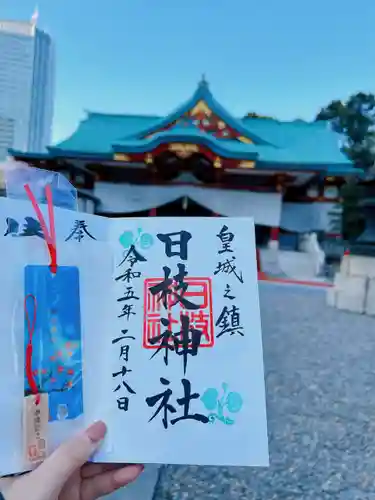 奉
皇城之鎮
日枝神社
日枝神社
令和五年二月十八日